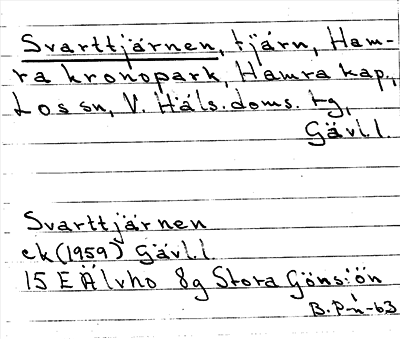 Svarttjärnen, tjärn, Ham-
ra kronopark, Hamra kap.,
Los sn, V. Häls. doms. tg,
Gävl.l.
Svarttjärnen
ek (1959) Gävl.l
15 E Älvho 8g Stora Gönsjön
B.P-n-63